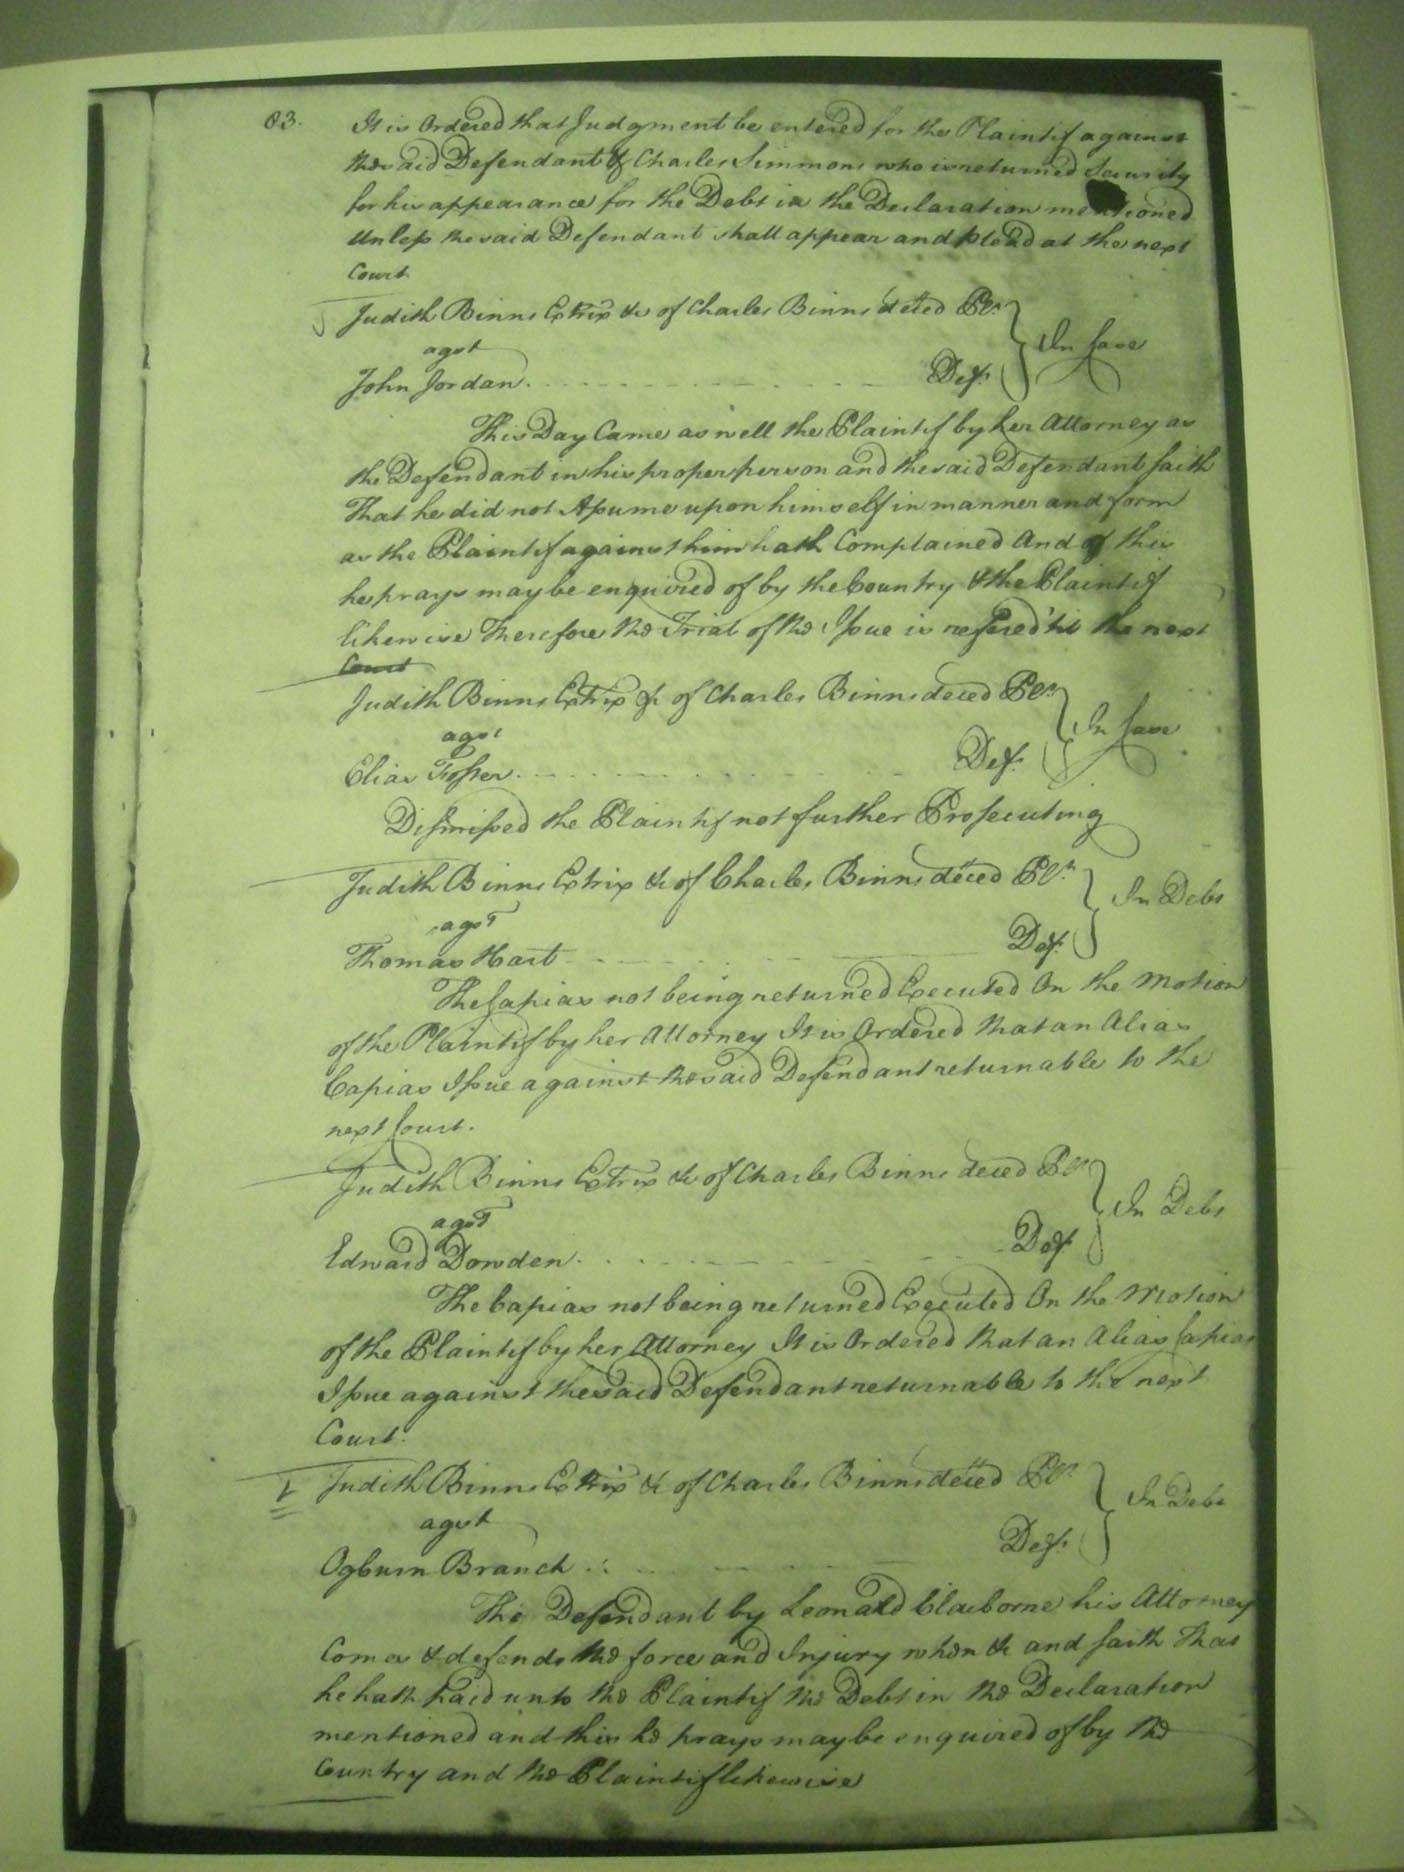 83.
It is Ordered that Judgment be entered for the Plaintif against
the said Defendant & Charles Simmons who is returned Security
for his appearance for the Debt in the Declaration mentioned
Unless the said Defendant shall appear and plead at the next
Court.
Judith Binns Extrix &c of Charles Binns deced Plt.
agst
In Case
John Jordan. Def:
This Day Came as well the Plaintif by her Attorney as
the Defendant in his proper person and the said Defendant saith
That he did not Assume upon himself in manner and form
as the Plaintif against him hath Complained And of this
he prays may be enquired of by the Country & the Plaintif
likewise Therefore the Trial of the Issue is refered 'til the next
Court
Judith Binns Extrix &c of Charles Binns deced Plt.
agst
In Case
Elias Def:
Dismissed the Plaintif not further Prosecuting
Judith Binns Extrix &c of Charles Binns deced Plt.
agst
In Debt
Thomas Hart Def:
The Capias not being returned Executed On the Motion
of the Plaintif by her Attorney It is Ordered that an Alias
Capias Issue against the said Defendant returnable to the
next Court.
Judith Binns Extrix &c of Charles Binns deced Plt.
agst
In Debt
Edward Dowden. Def:
The Capias not being returned Executed On the Motion
of the Plaintif by her Attorney It is Ordered that an Alias Capias
Issue against the said Defendant returnable to the next
Court.
Judith Binns Extrix &c of Charles Binns deced Plt.
agst
In Debt
Ogburn Branch Def:
The Defendant by Leonard Claiborne his Attorney
Comes & defends the force and Injury when &c and saith That
he hath paid unto the Plaintif the Debt in the Declaration
mentioned and this he prays may be enquired of by the
Country and the Plaintif likewise